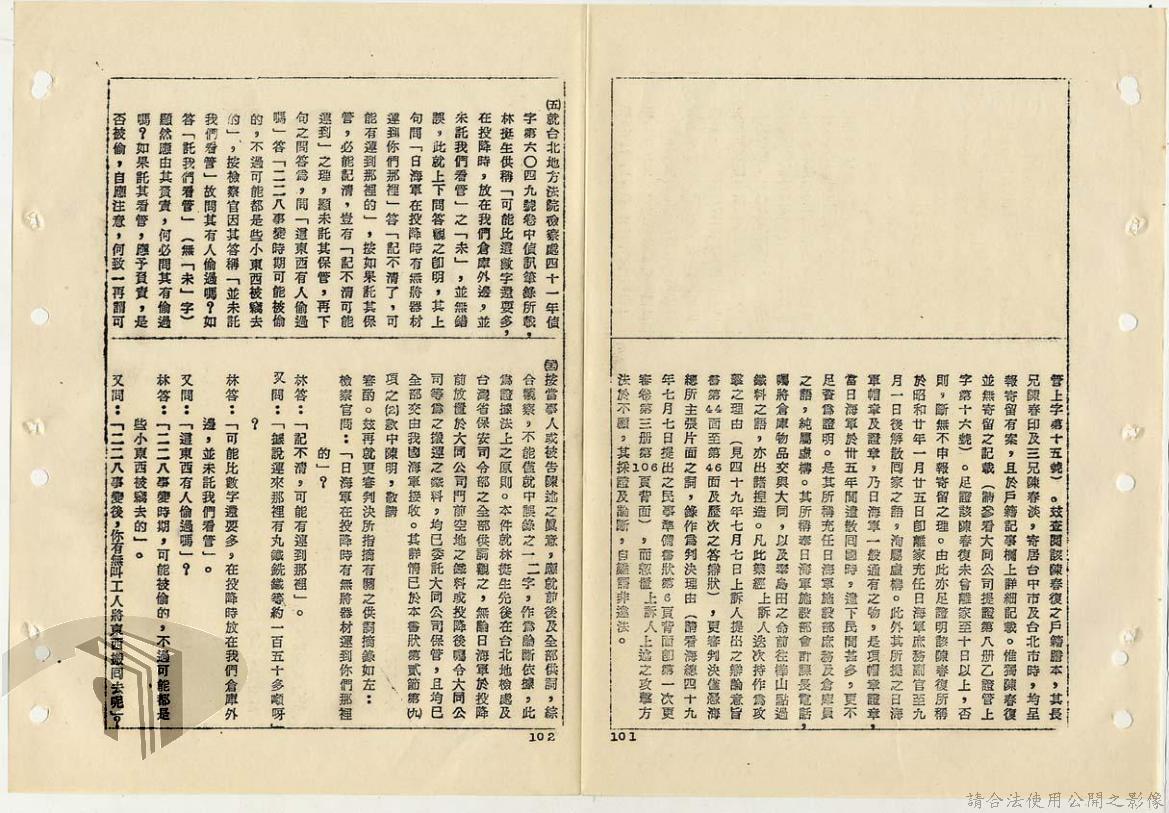 管上字第十五號)。玆查閱該陳春復之戶籍謄本,其長
兄陳春印及三兄陳春淡,寄居台中市及台北市時,均呈
報寄留有案,且於戶籍記事欄上詳細記載。惟獨陳春復
並無寄留之記載(請參看大同公司提證第八册乙證管上
字第十六號)。足證該陳春復未曾離家至十日以上,否
則,斷無不申報寄留之理。由此亦足證明該陳春復所稱
於昭和廿年一月廿五日卽離家充任日海軍庶務關官至九
月一日後解散回家之語,洵屬虛構。此外其所提之日海
軍帽章及證章,乃日海軍一般通有之物,是項帽章證章,
當日海軍於卅五年間遣散回國時,遺下民間甚多,更不
足資為證明。是其所稱充任日海軍施設部庶務及倉庫員
之語,純屬虛構。其所稱奉日海軍施設部會計課長電話,
囑將倉庫物品交與大同,以及奉島田之命前往樺山點過
鐵料之語,亦出諸捏造。凡此業經上訴人迭次持作為攻
擊之理由(見四十九年七月七日上訴人提出之辯論意旨
書第44面至第46面及歷次之答辯狀),更審判決僅憑海
總所主張片面之詞,錄作為判決理由(請看海總四十九
年七月七日提出之民事準備書狀第6頁背面卽第一次更
審卷第三册第106頁背面),而恝置上訴人上述之攻擊方
法於不顧,其採證及論斷,自難謂非違法。
101
㈤就台北地方法院檢察處四十一年偵
字第六〇四九號卷中偵訊筆錄所載,
林挺生供稱「可能比這數字還要多,
在投降時,放在我們倉庫外邊,並
未託我們看管」之「未」,並無錯
誤,此就上下問答觀之卽明,其上
句問「日海軍在投降時有無將器材
運到你們那裡」答「記不清了,可
能有運到那裡的」,按如果託其保
管,必能記清,豈有「記不清可能
運到」之理,顯未託其保管,再下
句之問答為,問「這東西有人偷過
嗎」答「二二八事變時期可能被偷
的,不過可能都是些小東西被竊去
的」,按檢察官因其答稱「並未託
我們看管」故問其有人偷過嗎?如
答「託我們看管」(無「未」字)
顯然應由其負責,何必問其有偷過
嗎?如果託其看管,應予負責,是
否被偷,自應注意,何致一再謂可
按當事人或被告陳述之眞意,應就前後及全部供詞,綜
合觀察,不能僅就中誤錄之一二字,作為論斷依據,此
為證據法上之原則。本件就林挺生先後在台北地檢處及
台灣省保安司令部之全部供詞觀之,無論日海軍於投降
前放置於大同公司門前空地之鐵料或投降後囑令大同公
司等為之搬運之鐵料,均已委託大同公司保管,且均已
全部交由我國海軍接收。其詳情已於本書狀第貳節第㈨
項之⑵款中陳明,敬請
審酌。玆再就更審判決所指摘有關之供詞摘錄如左:
檢察官問:「日海軍在投降時有無將器材運到你們那裡
的」?
林答:「記不清,可能有運到那裡」。
又問:「據說運來那裡有丸鐵銑鐵等約一百五十多噸呀」
?
林答:「可能比數字還要多,在投降時放在我們倉庫外
邊,並未託我們看管」。
又問:「這東西有人偷過嗎」?
林答:「二二八事變時期,可能被偷的,不過可能都是
些小東西被竊去的」。
又問:「二二八事變後,你有無叫工人將東西搬回去呢」?
102
請合法使用公開之影像